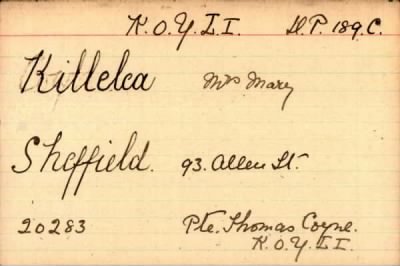 K.O.Y.L.I. D.P. 189.C.
Killelea Mrs Mary
Sheffield. 93. Allen St.
20283 Pte. Thomas Coyne.
K.O.Y.L.I.